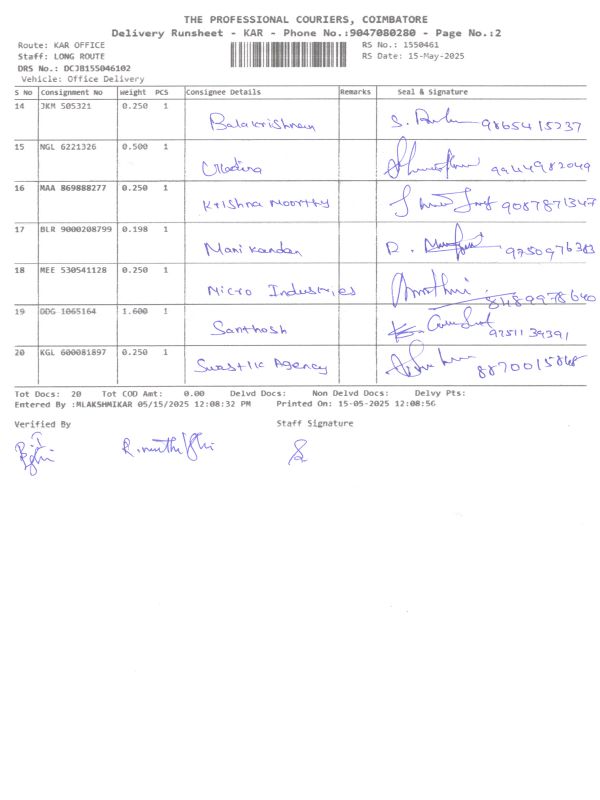 THE PROFESSIONAL COURIERS, COIMBATORE
Delivery Runsheet - KAR - Phone No.:9047080280 - Page No.:2
Route: KAR OFFICE RS No.: 1550461
Staff: LONG ROUTE RS Date: 15-May-2025
DRS No.: DCJB155046102
Vehicle: Office Delivery
S No Consignment No Weight PCS Consignee Details Remarks Seal & Signature
14 JKM 505321 0.250 1
Balakrishnan 9865415237
15 NGL 6221326 0.500 1
9944982049
16 MAA 869888277 0.250 1
Krishna Moorthy 9087871347
17 BLR 9000208799 0.198 1
Manikandan 9750976383
18 MEE 530541128 0.250 1
Micro Industries 8489978640
19 DDG 1065164 1.600 1
Santhosh
20 KGL 600081897 0.250 1
Swastik Agency 8870015868
Tot Docs: 20 Tot COD Amt: 0.00 Delvd Docs: Non Delvd Docs: Delvy Pts:
Entered By :MLAKSHMIKAR 05/15/2025 12:08:32 PM Printed On: 15-05-2025 12:08:56
Verified By Staff Signature